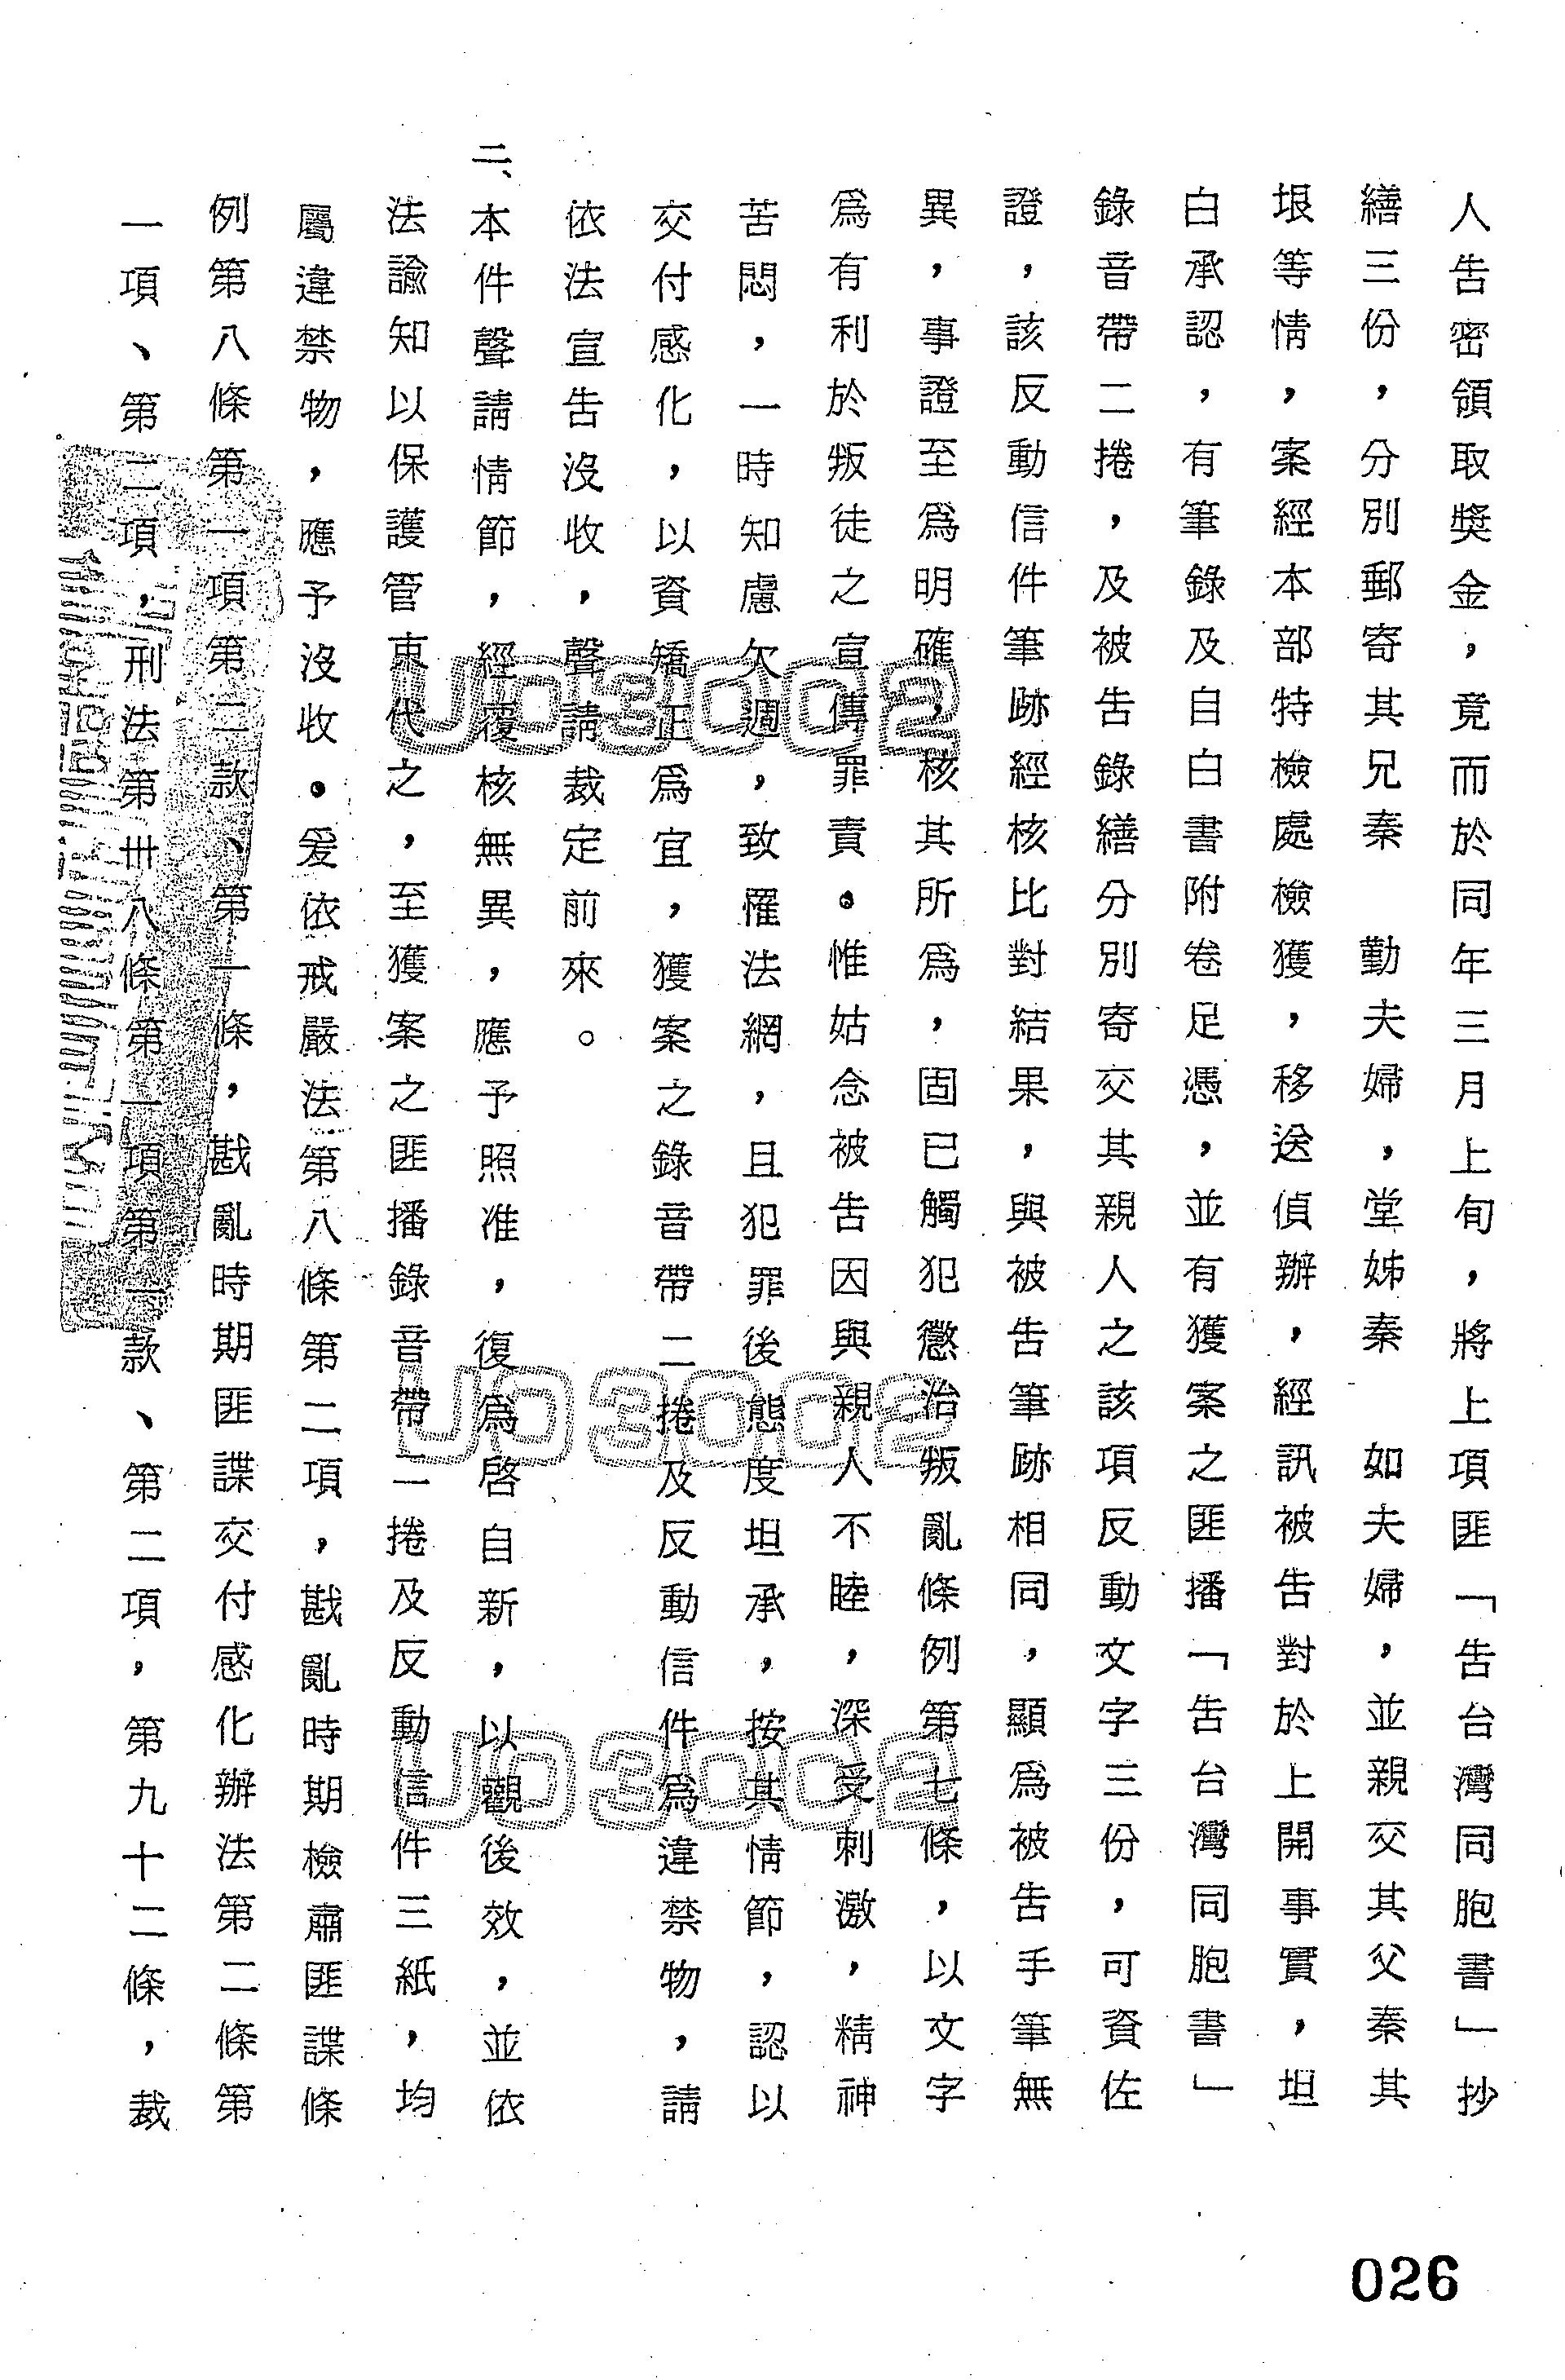 人告密領取獎金，竟而於同年三月上旬，將上項匪「告台灣同胞書」抄
繕三份，分別郵寄其兄秦　勤夫婦，堂姊秦　如夫婦，並親交其父秦其
垠等情，案經本部特檢處檢獲，移送偵辦，經訊被告對於上開事實，坦
白承認，有筆錄及自白書附卷足憑，並有獲案之匪播「告台灣同胞書」
錄音帶二捲，及被告錄繕分別寄交其親人之該項反動文字三份，可資佐
證，該反動信件筆跡經核比對結果，與被告筆跡相同，顯爲被告手筆無
異，事證至爲明確，核其所爲，固已觸犯懲治叛亂條例第七條，以文字
爲有利於叛徒之宣傳罪責。惟姑念被告因與親人不睦，深受刺激，精神
苦悶，一時知慮欠週，致罹法網，且犯罪後態度坦承，按其情節，認以
交付感化，以資矯正爲宜，獲案之錄音帶二捲及反動信件爲違禁物，請
依法宣告沒收，聲請裁定前來。
二、本件聲請情節，經覆核無異，應予照准，復爲啓自新，以觀後效，並依
法諭知以保護管束代之，至獲案之匪播錄音帶二捲及反動信件三紙，均
屬違禁物，應予沒收。爰依戒嚴法第八條第二項，戡亂時期檢肅匪諜條
例第八條第一項第二款、第一條，戡亂時期匪諜交付感化辦法第二條第
一項、第二項，刑法第卅八條第一項第一款、第二項，第九十二條，裁
UO3002
UO3002
UO3002
026